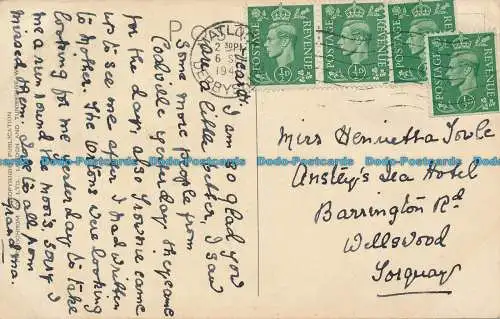 MATLOCK
2 30 PM
6 S
194
DERBYS
POSTAGE REVENUE
½D
POSTAGE REVENUE
½D
POSTAGE REVENUE
POSTAGE REVENUE
½D
P
Heart. I am so glad you
are a little better, I saw
Some more people from
Codville yesterday they came
for the day, also Brownie came
up to see me after I had written
to Mother. The were looking
looking for me yesterday to take
me a run round the moors sorry I
missed them. Love to all from
Grandma.
Miss Henrietta Towle
Anstey's Sea Hotel
Barrington Rd
Wellswood
Torquay
Dodo-Postcards Dodo-Postcards Dodo-Postcards Dodo-Postcards Dodo-Postcards